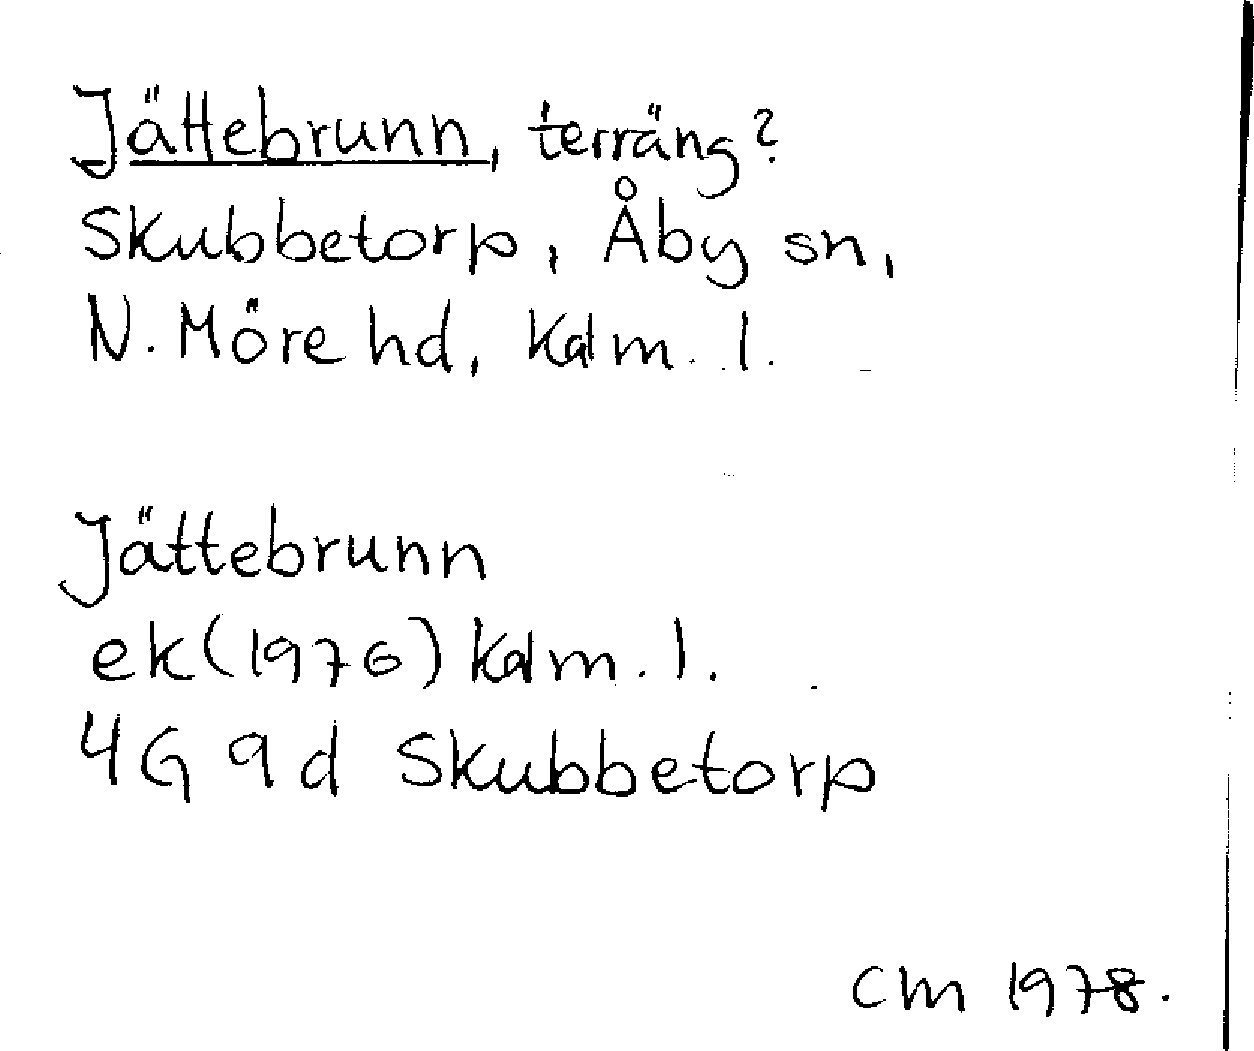 Jättebrunn, terräng?
Skubbetorp, Åby sn,
N. Möre hd, Kalm. l.
Jättebrunn
ek (1976) Kalm. l.
4G 9d Skubbetorp
CM 1978.